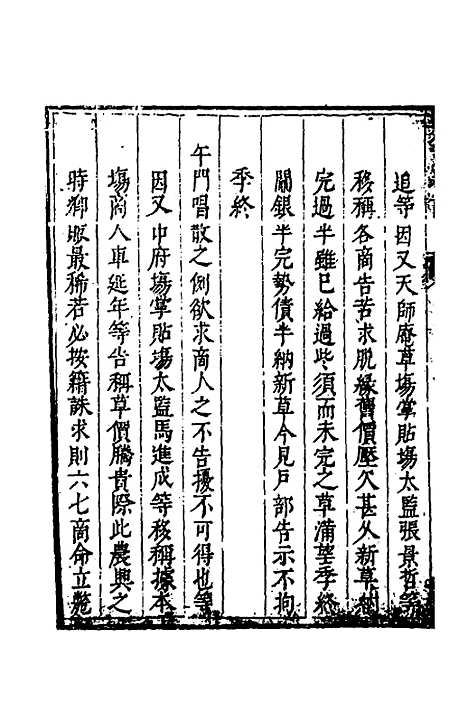 追等因又天師庵草塲掌貼塲太監張景哲等
移稱各商告苦求脫緣舊價壓欠甚久新草納
完過半雖已給過些須而未完之草滿望季終
關銀半完勢債半納新草今見戶部告示不拘
季終
午門唱散之例欲求商人之不告擾不可得也等
因又中府塲掌貼塲太監馬進成等移稱據本
塲商人車延年等告稱草價騰貴際此農興之
時獅眅最稀若必按籍誅求則六七商命立斃